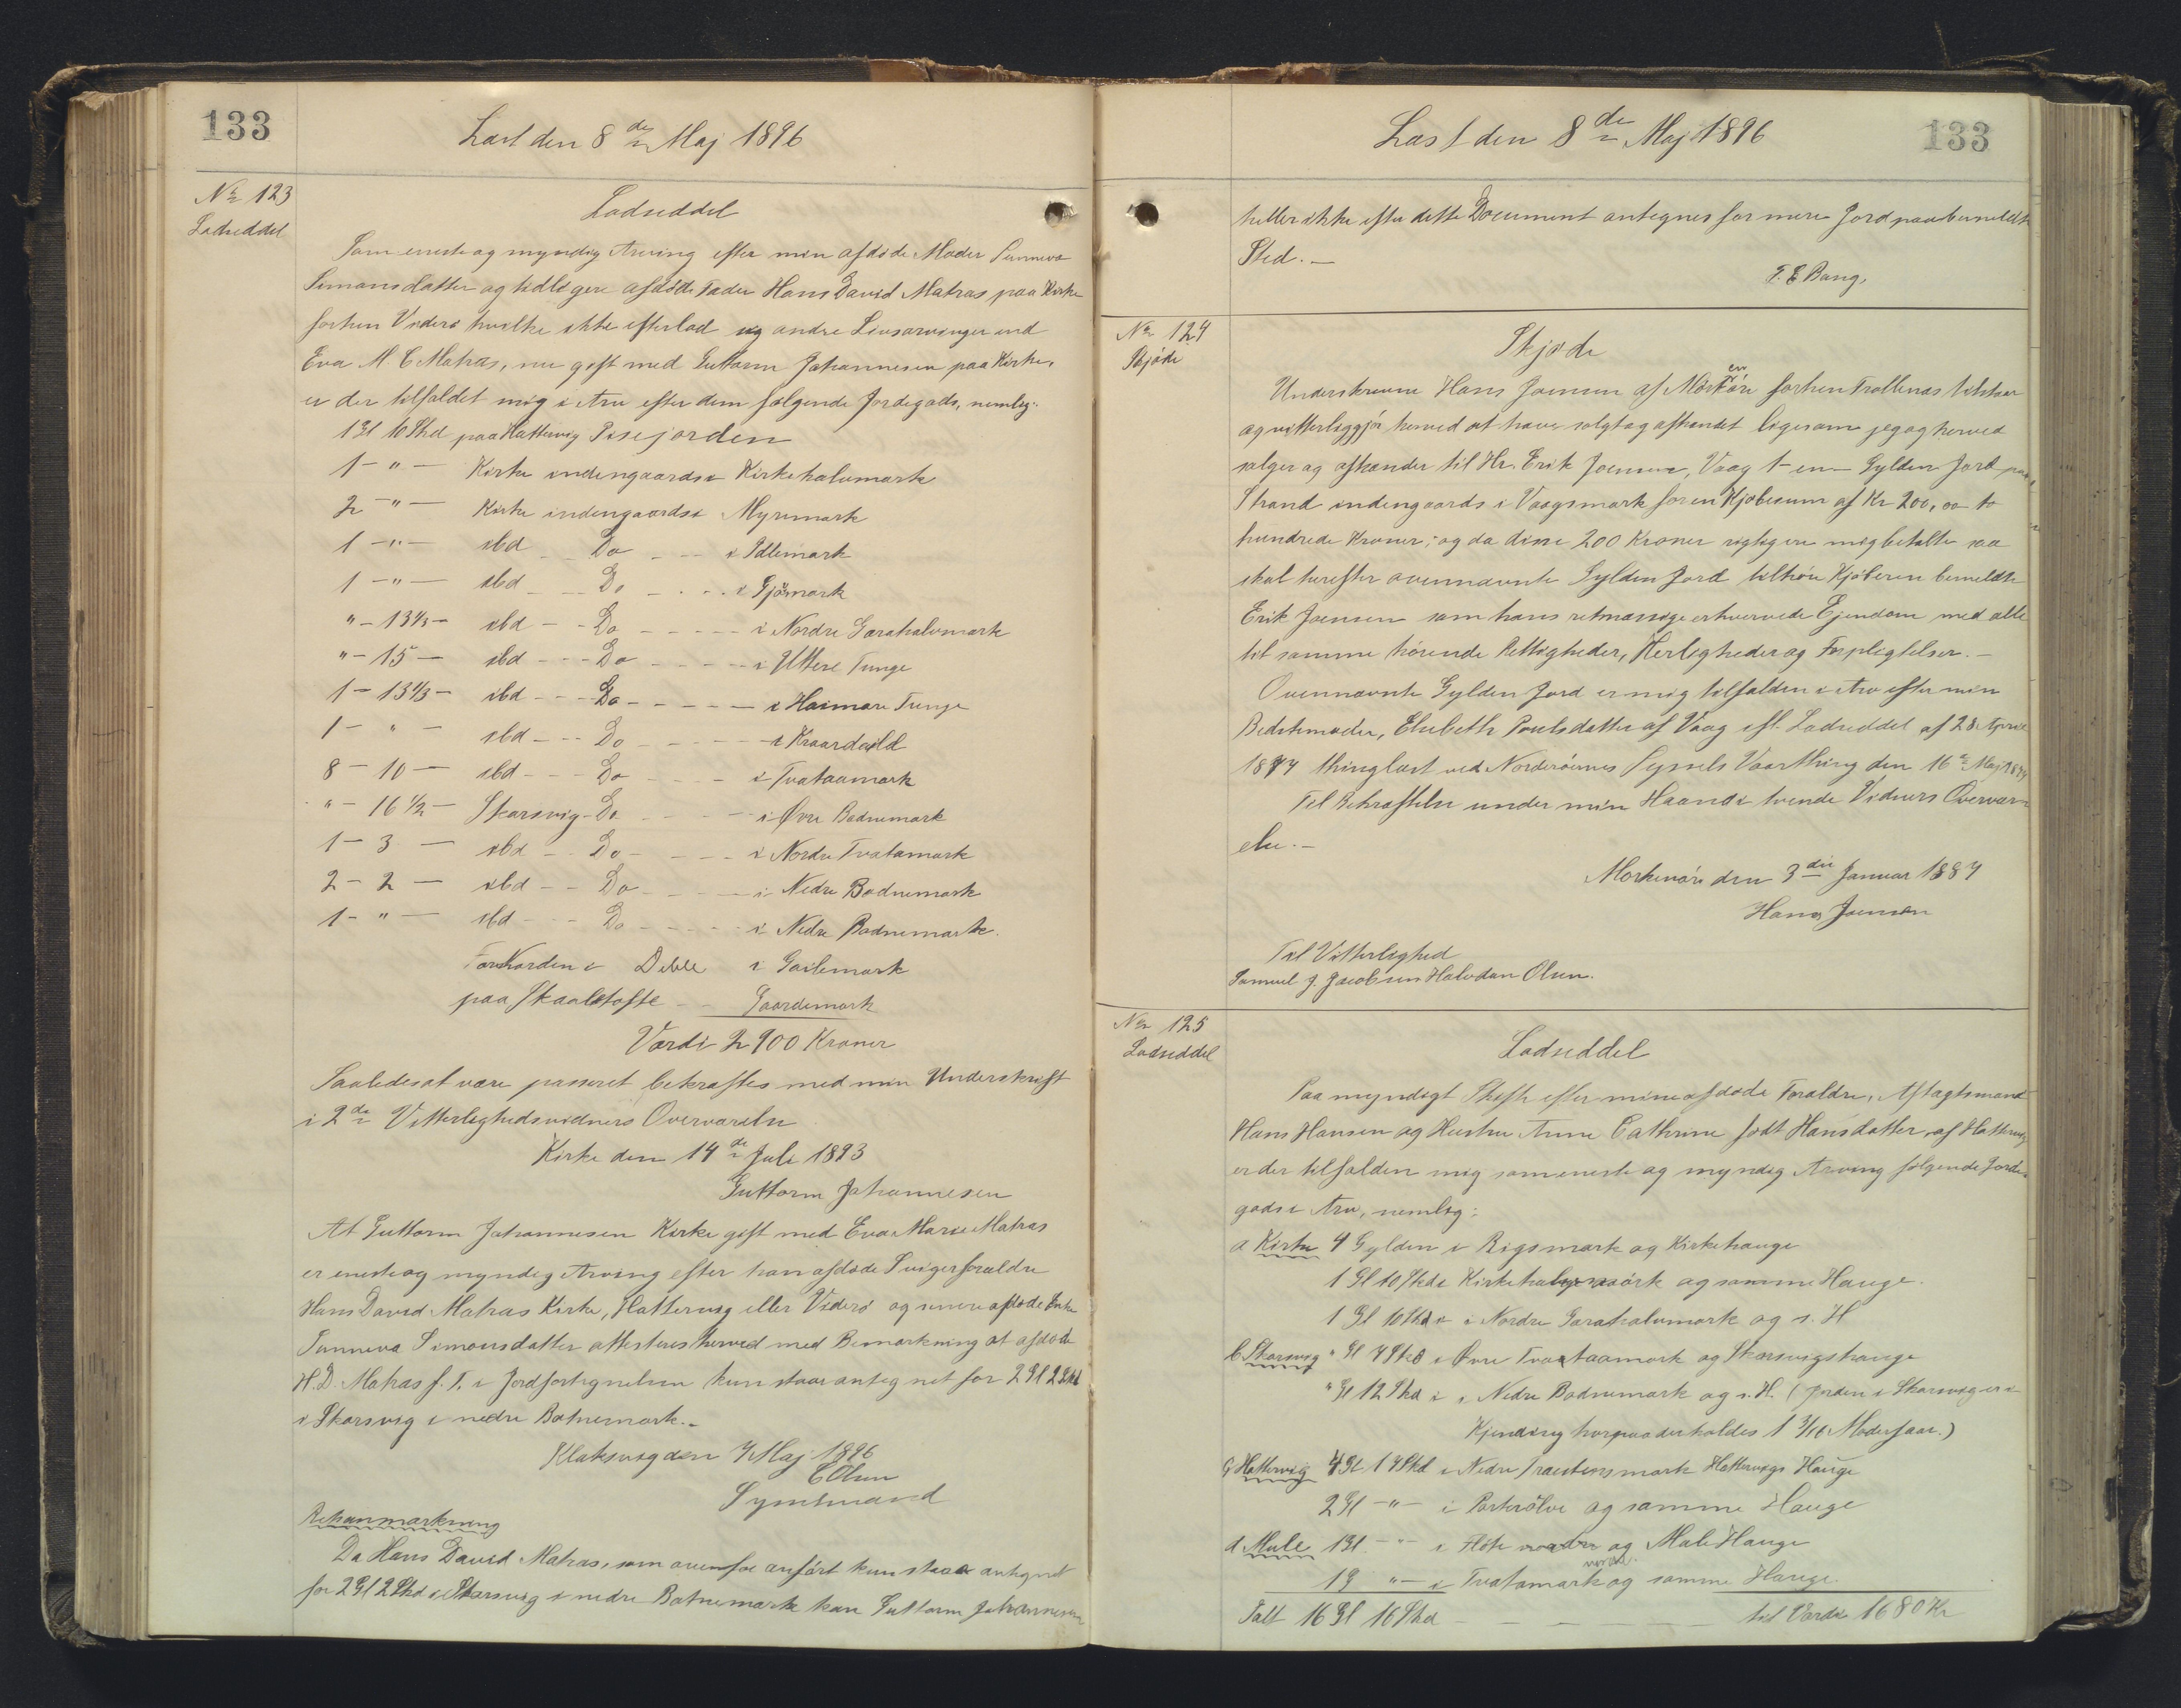 133
Læst den 8de Maj 1896
No 123
Lodseddel
Lodseddel
Som eneste og myndig Arving efter min afdøde Moder Sunneva
Simonsdatter og tidligere afdøde Fader Hans David Matras paa Kirke
forhen Viderø hvilke ikke efterlod sig andre Livsarvinger end
Eva M. C Matras, nu gift med Guttorm Johannesen paa Kirke,
er der tilfaldet mig i Arv efter dem følgende Jordegods, nemlig:
1 Gl 10 Skd paa Hattervig Pisejorden
1 - " - Kirke indengaards i Kirkehalvmark
2 - " - Kirke indengaards i Myremark
1 - " - ibd - Do - i Idlemark
1 - " - ibd - Do - i Gjømark
" - 13 1/3 - ibd - Do - i Nordre Garahalvmark
" - 15 - ibd - Do - i Uttere Tunge
1 - 13 1/3 - ibd - Do - i Haimare Tunge
1 - " - ibd - Do - i Kraardeild
8 - 10 - ibd - Do - i Tvataamark
" - 16 1/2 - Skarsvig - Do - i Øvre Bodnemark
1 - 3 - ibd - Do - i Nordre Tvatamark
2 - 2 - ibd - Do - i Nedre Bodnemark
1 - " - ibd - Do - i Nedre Bodnemark.
i Deble i Gailemark
paa Skaaletofte - Gaardemark
Værdi 2900 Kroner
Saaledes at være passeret bekræftes med min Underskrift
i 2de Vitterlighedsvidners Overværelse
Kirke den 14de Juli 1893
Guttorm Johannesen
At Guttorm Johannesen Kirke gift med Eva Marie Matras
er eneste og myndig Arving efter han afdøde Svigerforældre
Hans David Matras Kirke, Hattervig eller Viderø og senere afdøde Enke
Sunneva Simonsdatter attesteres herved med Bemærkning at afdøde
H. D. Matras f. T. i Jordfortegnelsen kun staar antegnet for 2 Gl 2 Skd
i Skarsvig i nedre Botnemark.-
Klaksvig den 7 Maj 1896
C Olsen
Sysselmand
Retsanmærkning
Da Hans David Matras, som ovenfor anført kun staar antegnet
for 2 Gl 2 Skd i Skarsvig i nedre Botnemark kan Guttorm Johannesen
Læst den 8de Maj 1896
133
heller ikke efter dette Document antegnes for mere Jord paa bemeldte
Sted.-
F. E Bang.
No 124
Skjøde
Skjøde
Underskrevne Hans Joensen af Morkenøre forhen Trøllenæs tilstaar
og vitterliggjør herved at have solgt og afhændet ligesom jeg og herved
sælger og afhænder til Hr. Erik Joensen, Vaag 1 - en - Gylden Jord paa
Strand indengaards i Vaagsmark for en Kjøbesum af Kr 200,00 to
hundrede Kroner; og da disse 200 Kroner rigtig ere mig betalte saa
skal herefter ovennævnte Gylden Jord tilhøre Kjøberen bemeldte
Erik Joensen som hans retmæssige erhvervede Ejendom med alle
til samme hørende Rettigheder, Herligheder og Forpligtelser.-
Ovennævnte Gylden Jord er mig tilfalden i Arv efter min
Bedstemoder, Elsebeth Poulsdatter af Vaag ifl. Lodseddel af 28 April
1874 thinglæst ved Norderøernes Syssels Vaarthing den 16de Maj 1874
Til Bekræftelse under min Haand i tvende Vidners Overvær-
else.-
Morkenøre den 3die Januar 1887
Hans Joensen
Til Vitterlighed
Samuel J. Jacobsen Halvdan Olsen.
No 125
Lodseddel
Lodseddel
Paa myndigt Skifte efter mine afdøde Forældre, Aftagtsmand
Hans Hansen og Hustru Anne Cathrine født Hansdatter, af Hattervig
er der tilfalden mig som eneste og myndig Arving følgende Jorde-
gods i Arv, nemlig:
a Kirke 4 Gylden i Rigsmark og Kirkehauge
1 Gl 10 Skd i Kirkehalvmark og samme Hauge.
1 Gl 10 Skd i Nordre Garahalvmark og s. H
b Skarsvig " Gl 4 Skd i Øvre Tvataamark og Skarsvigshauge
" Gl 12 Skd i Nedre Bodnemark og s. H. (Jorden i Skarsvig er i
Kjending hvorpaa der holdes 1 3/16 Moderfaar.)
c Hattervig 4 Gl 14 Skd i Nedre mark Hattervigs Hauge
2 Gl - " - i og samme Hauge
d Mule 1 Gl - " - i Fløte nordre og Mule Hauge
1 G " - i Tvatamark nordre og samme Hauge.
Ialt 16 Gl 16 Skd - til Værdi 1680 Kr